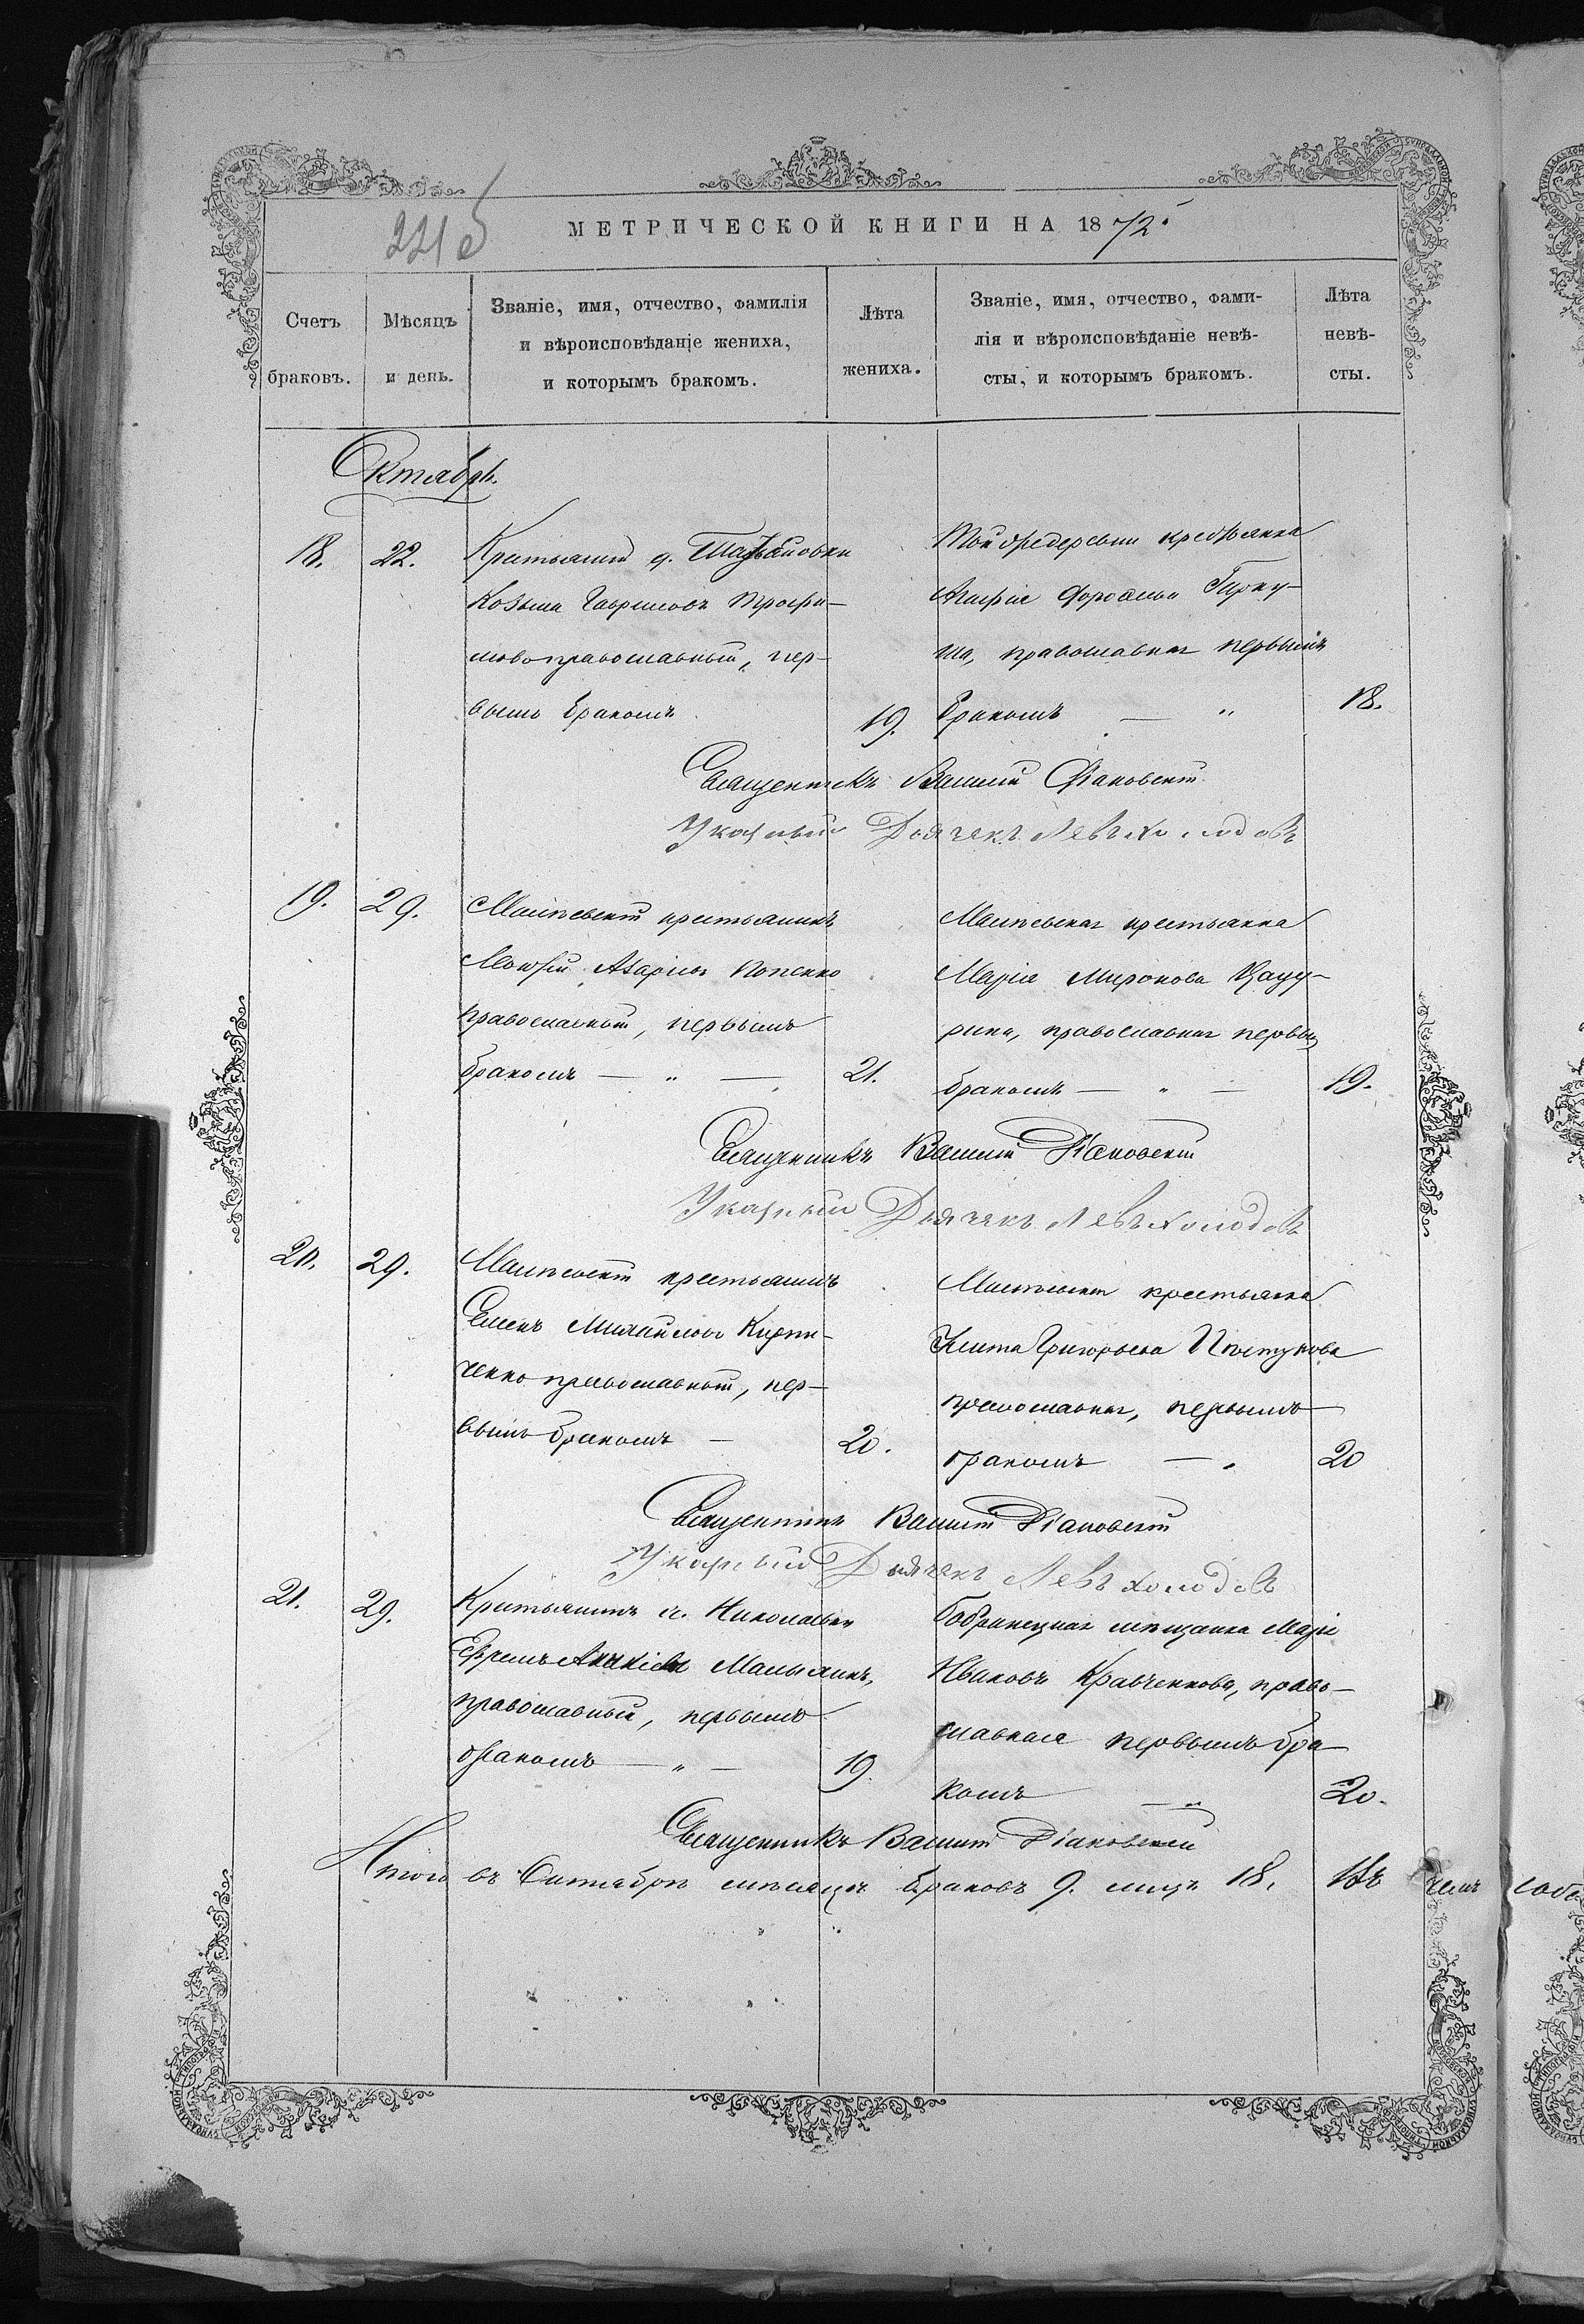 221 об
МЕТРИЧЕСКОЙ КНИГИ НА 1872.
Счетъ браковъ.
Мѣсяцъ и день.
Званіе, имя, отчество, фамилія
и вѣроисповѣданіе жениха,
и которымъ бракомъ.
Лѣта жениха.
Званіе, имя, отчество, фами-
лія и вѣроисповѣданіе невѣ-
сты, и которымъ бракомъ.
Лѣта невѣ-
сты.
Октябрь.
18. 22.
Крестьянинъ д.
Козьма Гавриловъ Трофи-
мовъ православный, пер-
вымъ бракомъ 19.
Той же деревни крестьянка
Агафія Гарку-
ша, православная первымъ
бракомъ — " 18.
Священникъ Василій Діановскій
Указный Дьячекъ Левъ Холодовъ
19. 29.
крестьянинъ
Моисей Азаріевъ Попенко
православный, первымъ
бракомъ — " — 21.
крестьянка
Марія Миронова Кацу-
рина, православная первым
бракомъ — " — 19.
Священникъ Василій Діановскій
Указный Дьячекъ Левъ Холодовъ
20. 29.
крестьянинъ
Семенъ Михайловъ Кирпи-
ченко православный, пер-
вымъ бракомъ — 20.
крестьянка
Григорьева Пастухова
православная, первымъ
бракомъ — " 20
Священникъ Василій Діановскій
Указный Дьячекъ Левъ Холодовъ
21. 29.
Крестьянинъ с. Николаевки
Ефремъ Акакіевъ
православный, первымъ
бракомъ — " — 19.
Бобринецкая мѣщанка Марія
Иванова Кравченкова, право-
славная первымъ бра-
комъ — " 20.
Священникъ Василій Діановскій
Итого въ Октябрѣ мѣсяцѣ браковъ 9. лицъ 18. Въ чемъ